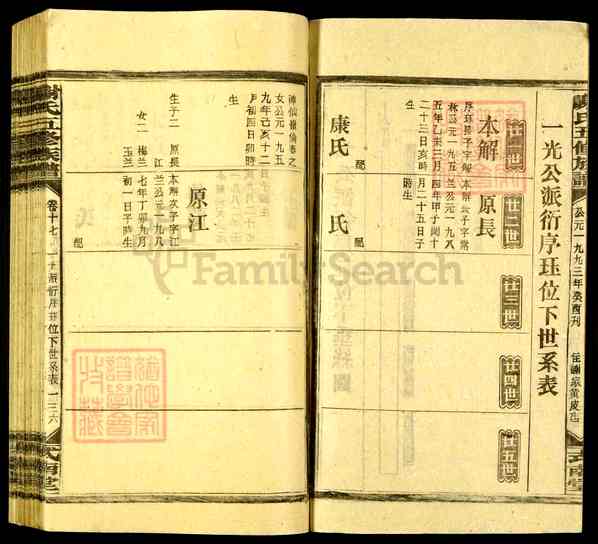 謝氏五修族譜
公元一九九三年癸酉刊
一光公派衍序珏位下世系表
廿一世
廿二世
廿三世
廿四世
廿五世
本解
序環長子字解
林公元一九五
五年乙未三月
二十三日亥時
生
配
康氏
神仙嶺倚春之
女公元一九五
九年己亥十二
月初四日卯時
生
生子二 原長
江
女二 梅兰
玉兰
原長
本解長子字常
兰公元一九八
四年甲子閏十
月二十五日子
時生
配
氏
原江
本解次子字江
兰公元一九八
七年丁卯九月
初一日子時生
配
謝氏五修族譜
卷十七
一光派衍序珏位下世系表
一三六
FamilySearch
猶他家
譜學會
收藏